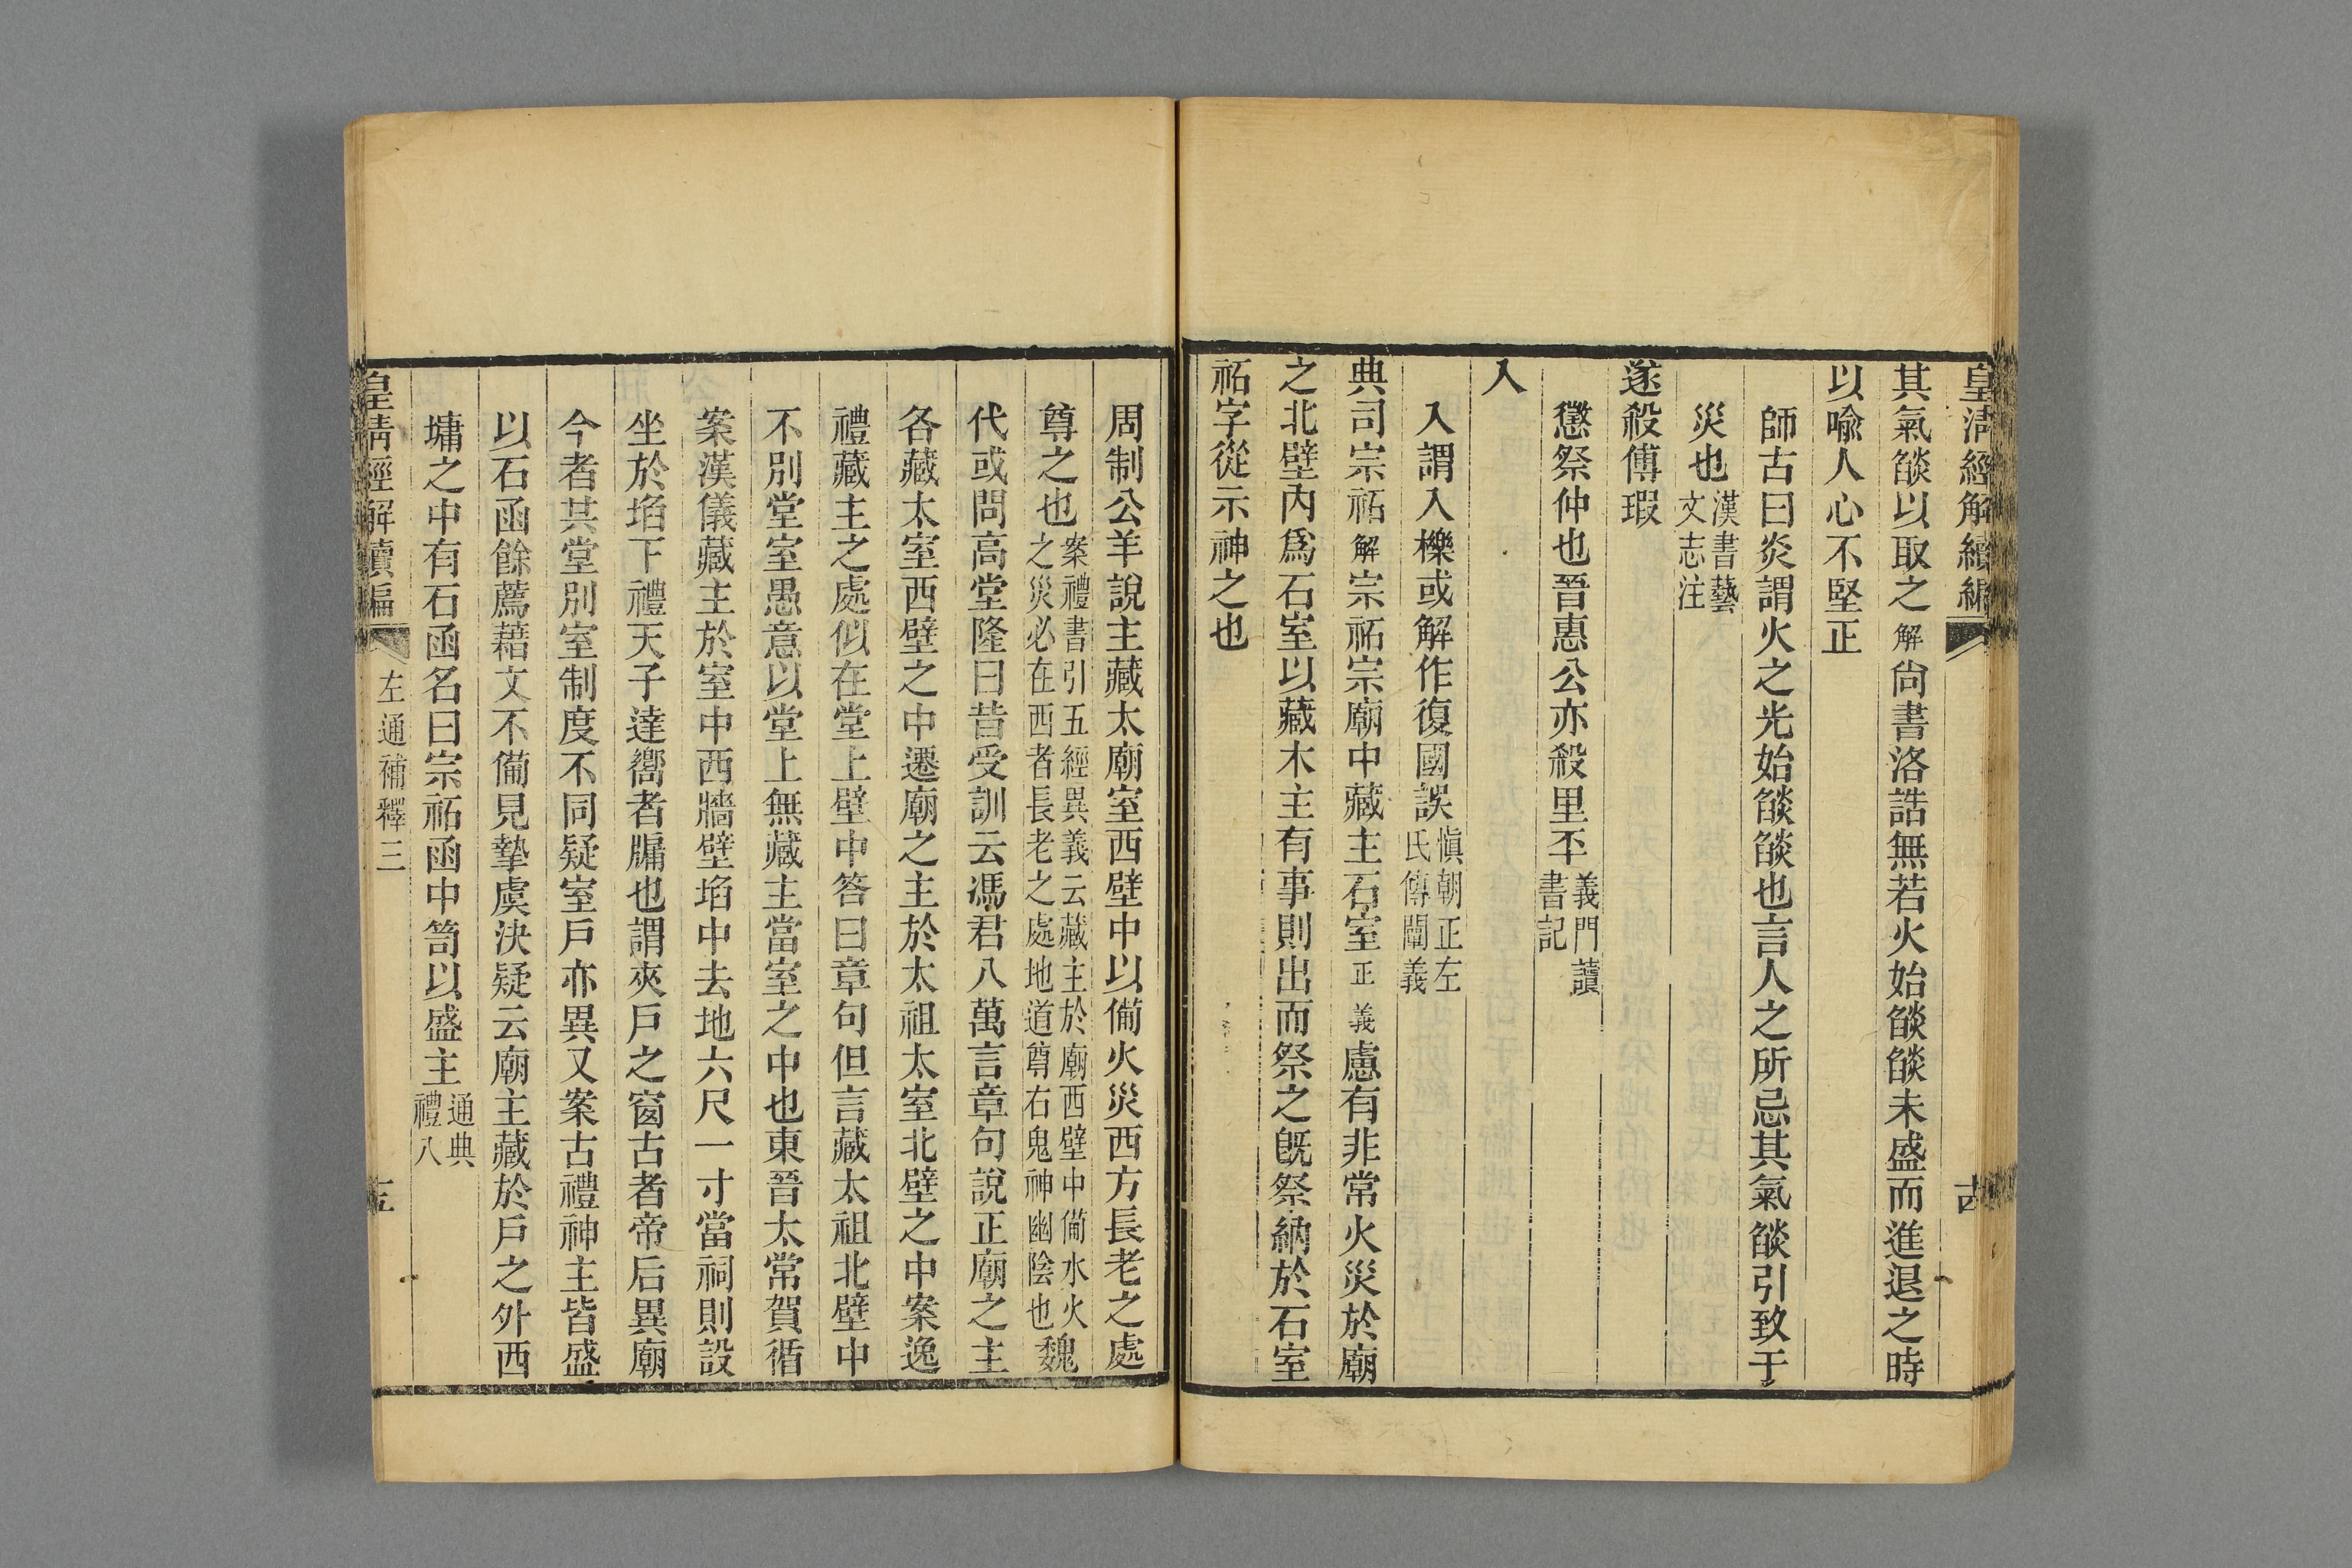 皇清經解續編
其氣燄以取之解尙書洛誥無若火始燄燄未盛而進退之時
以喻人心不堅正
師古曰炎謂火之光始燄燄也言人之所忌其氣燄引致于
災也漢書藝文志注
遂殺傅瑕
懲祭仲也晉惠公亦殺里㔻義門讀書記
入
入謂入櫟或解作復國誤愼朝正左氏傳闡義
典司宗祏解宗祏宗廟中藏主石室正義慮有非常火災於廟
之北壁內爲石室以藏木主有事則出而祭之旣祭納於石室
祏字從示神之也
周制公羊說主藏太廟室西壁中以備火災西方長老之處
尊之也案禮書引五經異義云藏主於廟西壁中備水火之災必在西者長老之處地道尊右鬼神幽陰也魏
代或問高堂隆曰昔受訓云馮君八萬言章句說正廟之主
各藏太室西壁之中遷廟之主於太祖太室北壁之中案逸
禮藏主之處似在堂上壁中答曰章句但言藏太祖北壁中
不別堂室愚意以堂上無藏主當室之中也東晉太常賀循
案漢儀藏主於室中西牆壁埳中去地六尺一寸當祠則設
坐於埳下禮天子達嚮者牖也謂夾戶之窗古者帝后異廟
今者共堂別室制度不同疑室戶亦異又案古禮神主皆盛
以石函餘薦藉文不備見摯虞決疑云廟主藏於戶之外西
墉之中有石函名曰宗祏函中笥以盛主通典禮八
皇清經解續編
左通補釋三